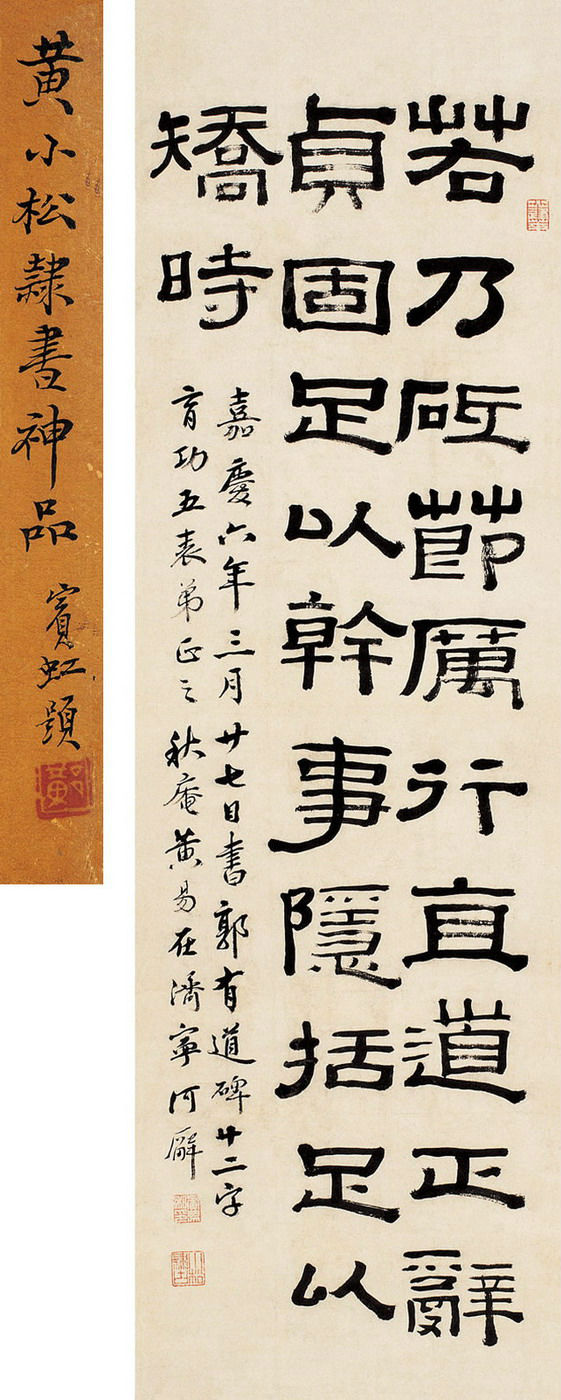 若乃砥節厲行直道正辭
貞固足以幹事隱括足以
矯時
嘉慶六年三月廿七日書郭有道碑廿二字
育功五表弟正之秋庵黃易在濟寧河廨
黃小松隸書神品
賓虹題